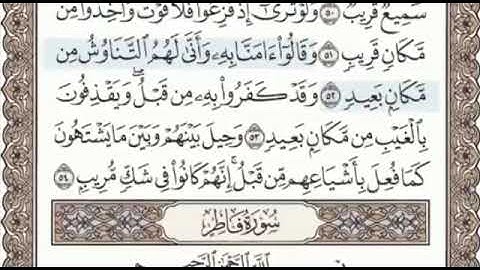 سَمِيعٌ قَرِيبٌ ۝٥٠ وَلَوْ تَرَىٰٓ إِذْ فَزِعُوا۟ فَلَا فَوْتَ وَأُخِذُوا۟ مِن
مَّكَانٍ قَرِيبٍ ۝٥١ وَقَالُوٓا۟ ءَامَنَّا بِهِۦ وَأَنَّىٰ لَهُمُ ٱلتَّنَاوُشُ مِن
مَّكَانٍۭ بَعِيدٍ ۝٥٢ وَقَدْ كَفَرُوا۟ بِهِۦ مِن قَبْلُ ۖ وَيَقْذِفُونَ
بِٱلْغَيْبِ مِن مَّكَانٍۭ بَعِيدٍ ۝٥٣ وَحِيلَ بَيْنَهُمْ وَبَيْنَ مَا يَشْتَهُونَ
كَمَا فُعِلَ بِأَشْيَاعِهِم مِّن قَبْلُ ۚ إِنَّهُمْ كَانُوا۟ فِى شَكٍّ مُّرِيبٍۭ ۝٥٤
سُورَةُ فَاطِرٍ
ٱللَّهِ ٱلرَّحْمَٰنِ ٱلرَّحِيمِ